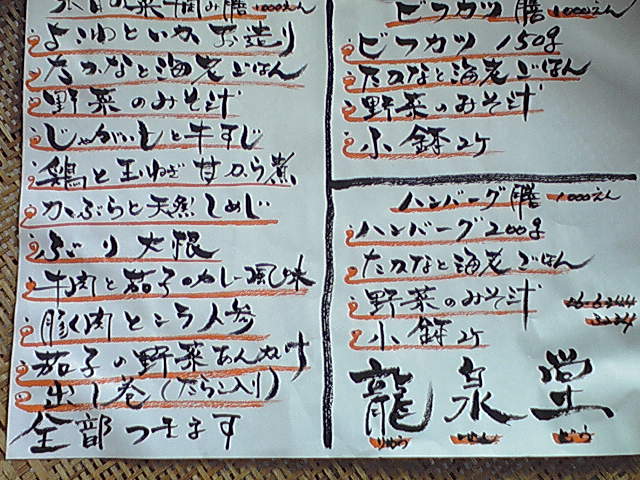 菜 膳 1000えん
よこわといか お造り
たかなと海老ごはん
野菜のみそ汁
じゃがいもと牛すじ
鶏と玉ねぎ甘から煮
かぶらと天然しめじ
ぶり大根
牛肉と茄子のカレー風味
豚肉とニラ人参
茄子の野菜あんかけ
出し巻(たらこ入り)
全部つきます
ビフカツ膳 1000えん
ビフカツ 150g
たかなと海老ごはん
野菜のみそ汁
小鉢2ケ
ハンバーグ膳 1000えん
ハンバーグ200g
たかなと海老ごはん
野菜のみそ汁
小鉢2ケ
龍泉堂
りゅう せん どう